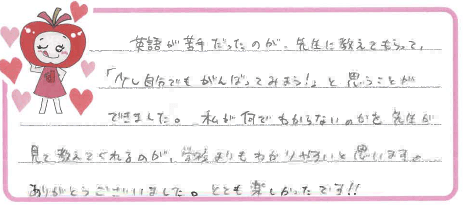 英語が苦手だったのが、先生に教えてもらって、
「少し自分でもがんばってみよう！」と思うことが
できました。私が何でもわからないのかを先生が
見て教えてくれるのが、学校よりもわかりやすいと思います。
ありがとうございました。とても楽しかったです!!